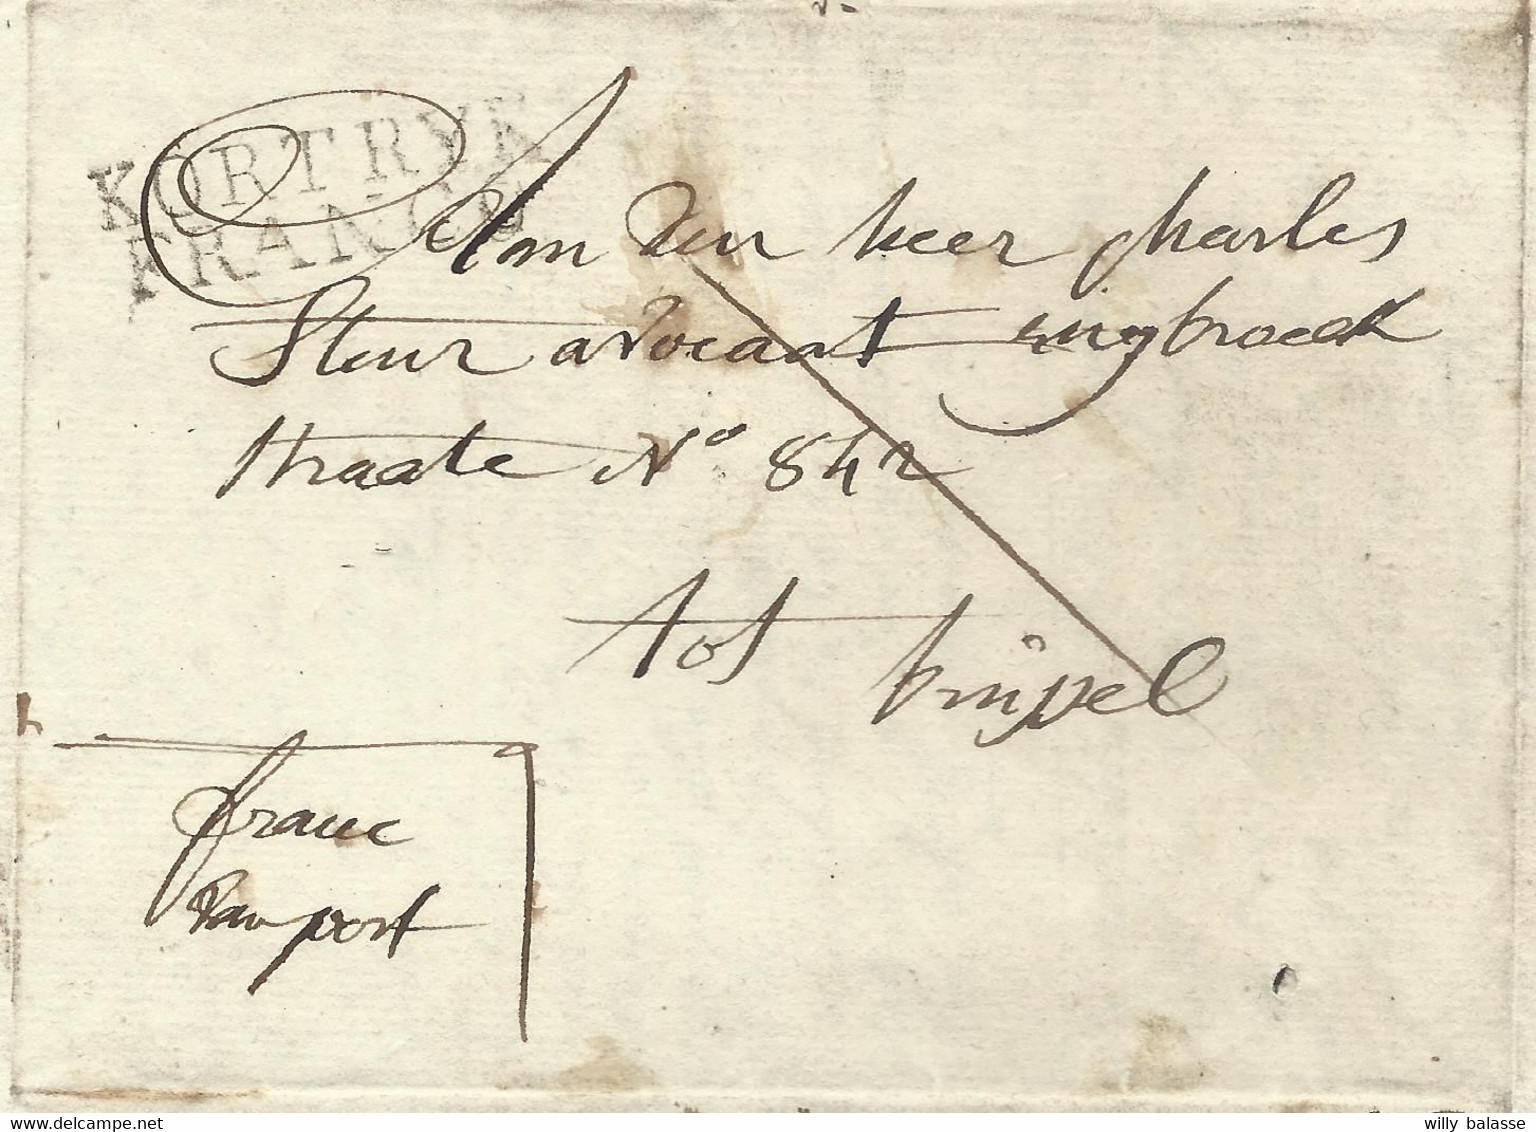 KORTRYK
FRANCO
Aan den heer charles
Steur avocaat ruysbroeck
straate N° 842
tot brussel
franc
van port
willy balasse